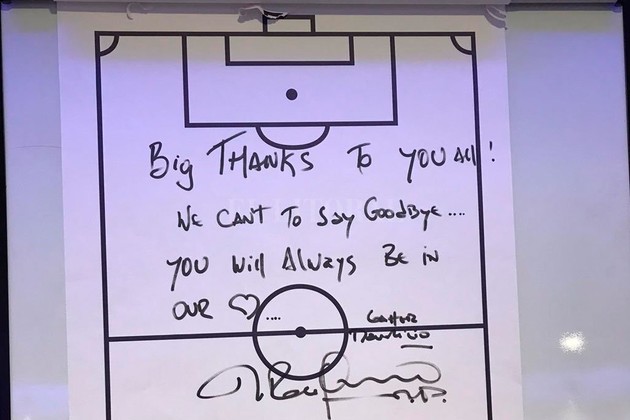 Big THANKS To YOU All!
WE CAN'T To SAy GoodByE....
YOU Will AlWAyS BE iN
OUR ♡....